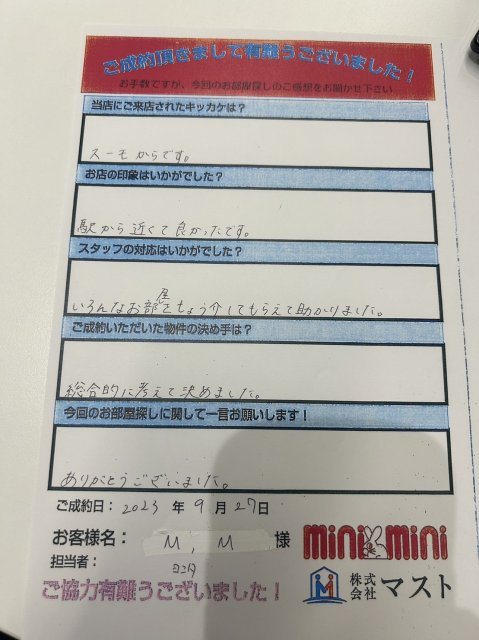 ご成約頂きまして有難うございました！
お手数ですが、今回のお部屋探しのご感想をお聞かせ下さい
当店にご来店されたキッカケは？
スーモからです。
お店の印象はいかがでした？
駅から近くて良かったです。
スタッフの対応はいかがでした？
いろんなお部屋をしょう介してもらえて助かりました。
ご成約いただいた物件の決め手は？
総合的に考えて決めました。
今回のお部屋探しに関して一言お願いします！
ありがとうございました。
ご成約日：2023 年 9 月 27日
お客様名： M．M 様
mini mini
担当者：
株式会社 マスト
ご協力有難うございました！